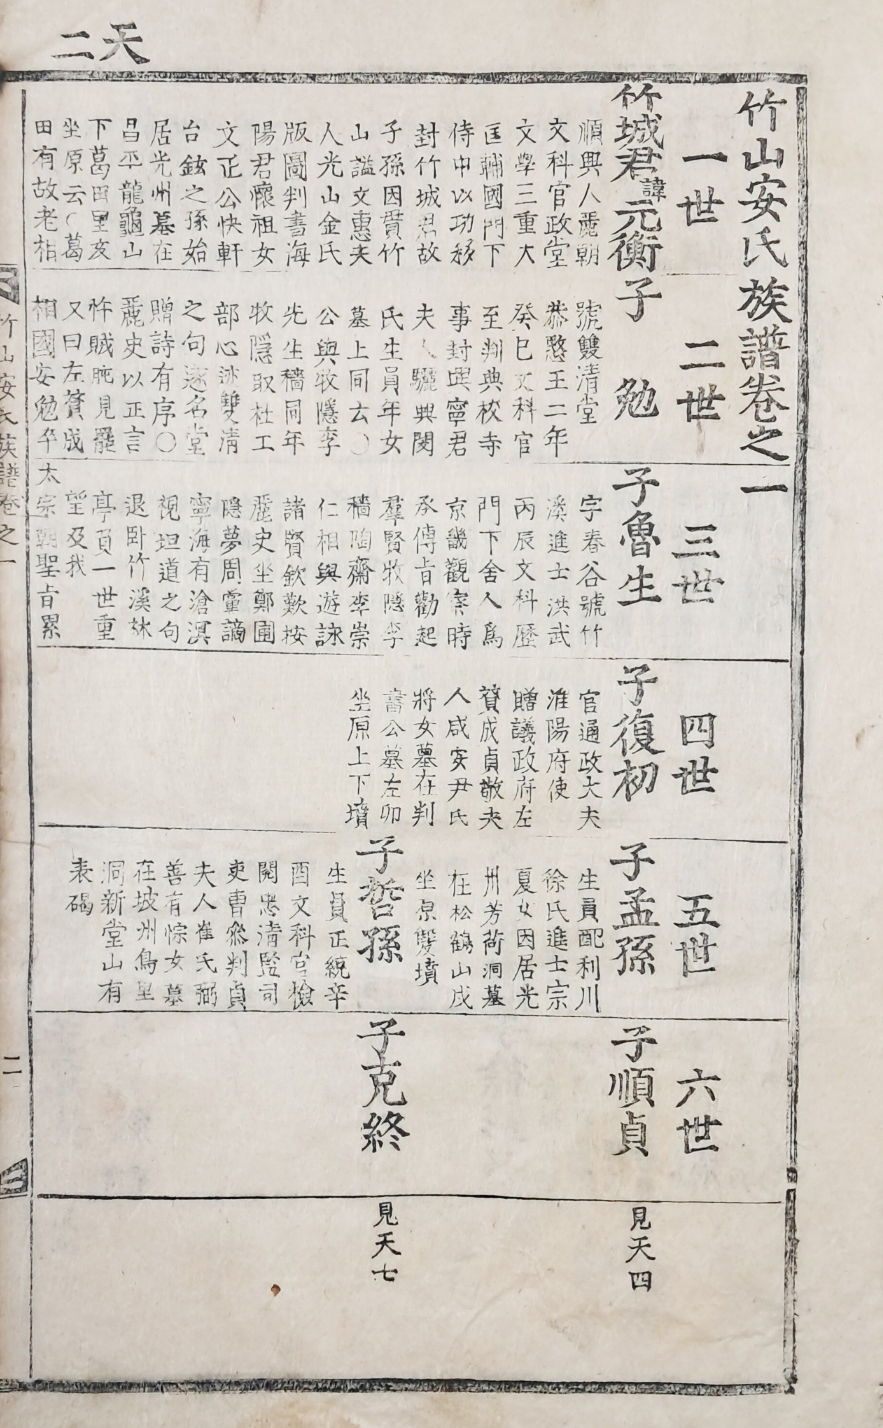 天二
竹山安氏族譜卷之一
一世
竹城君諱元衡
順興人麗朝
文科官政堂
文學三重大
匡輔國門下
侍中以功移
封竹城君故
子孫因貫竹
山諡文惠夫
人光山金氏
版圖判書海
陽君懷祖女
文正公快軒
台鉉之孫始
居光州墓在
昌平龍龜山
下葛田里亥
坐原云〇葛
田有故老相
二世
子勉
號雙清堂
恭愍王二年
癸巳文科官
至判典校寺
事封興寧君
夫人驪興閔
氏生員年女
墓上同玄〇
公與牧隱李
先生穡同年
牧隱取杜工
部心迹雙清
之句遂名堂
贈詩有序〇
麗史以正言
忤賊旽見罷
又曰左贊成
相國安勉卒
三世
子魯生
字春谷號竹
溪進士洪武
丙辰文科歷
門下舍人爲
京畿觀察時
承傳旨勸起
羣賢牧隱李
穡陶齋李崇
仁相與遊詠
諸賢欽歎按
麗史坐鄭圃
隱夢周黨謫
寧海有滄溟
視坦道之句
退卧竹溪林
亭負一世重
望及我
太宗朝聖旨累
四世
子復初
官通政大夫
淮陽府使
贈議政府左
贊成貞敬夫
人咸安尹氏
將女墓在判
書公墓左卯
坐原上下墳
五世
子孟孫
生員配利川
徐氏進士宗
夏女因居光
州芳荷洞墓
在松鶴山戌
坐原雙墳
子哲孫
生員正統辛
酉文科官檢
閱忠清監司
吏曹參判貞
夫人崔氏弼
善有悰女墓
在坡州烏里
洞新堂山有
表碣
六世
子順貞
見天四
子克終
見天七
竹山安氏族譜卷之一
二